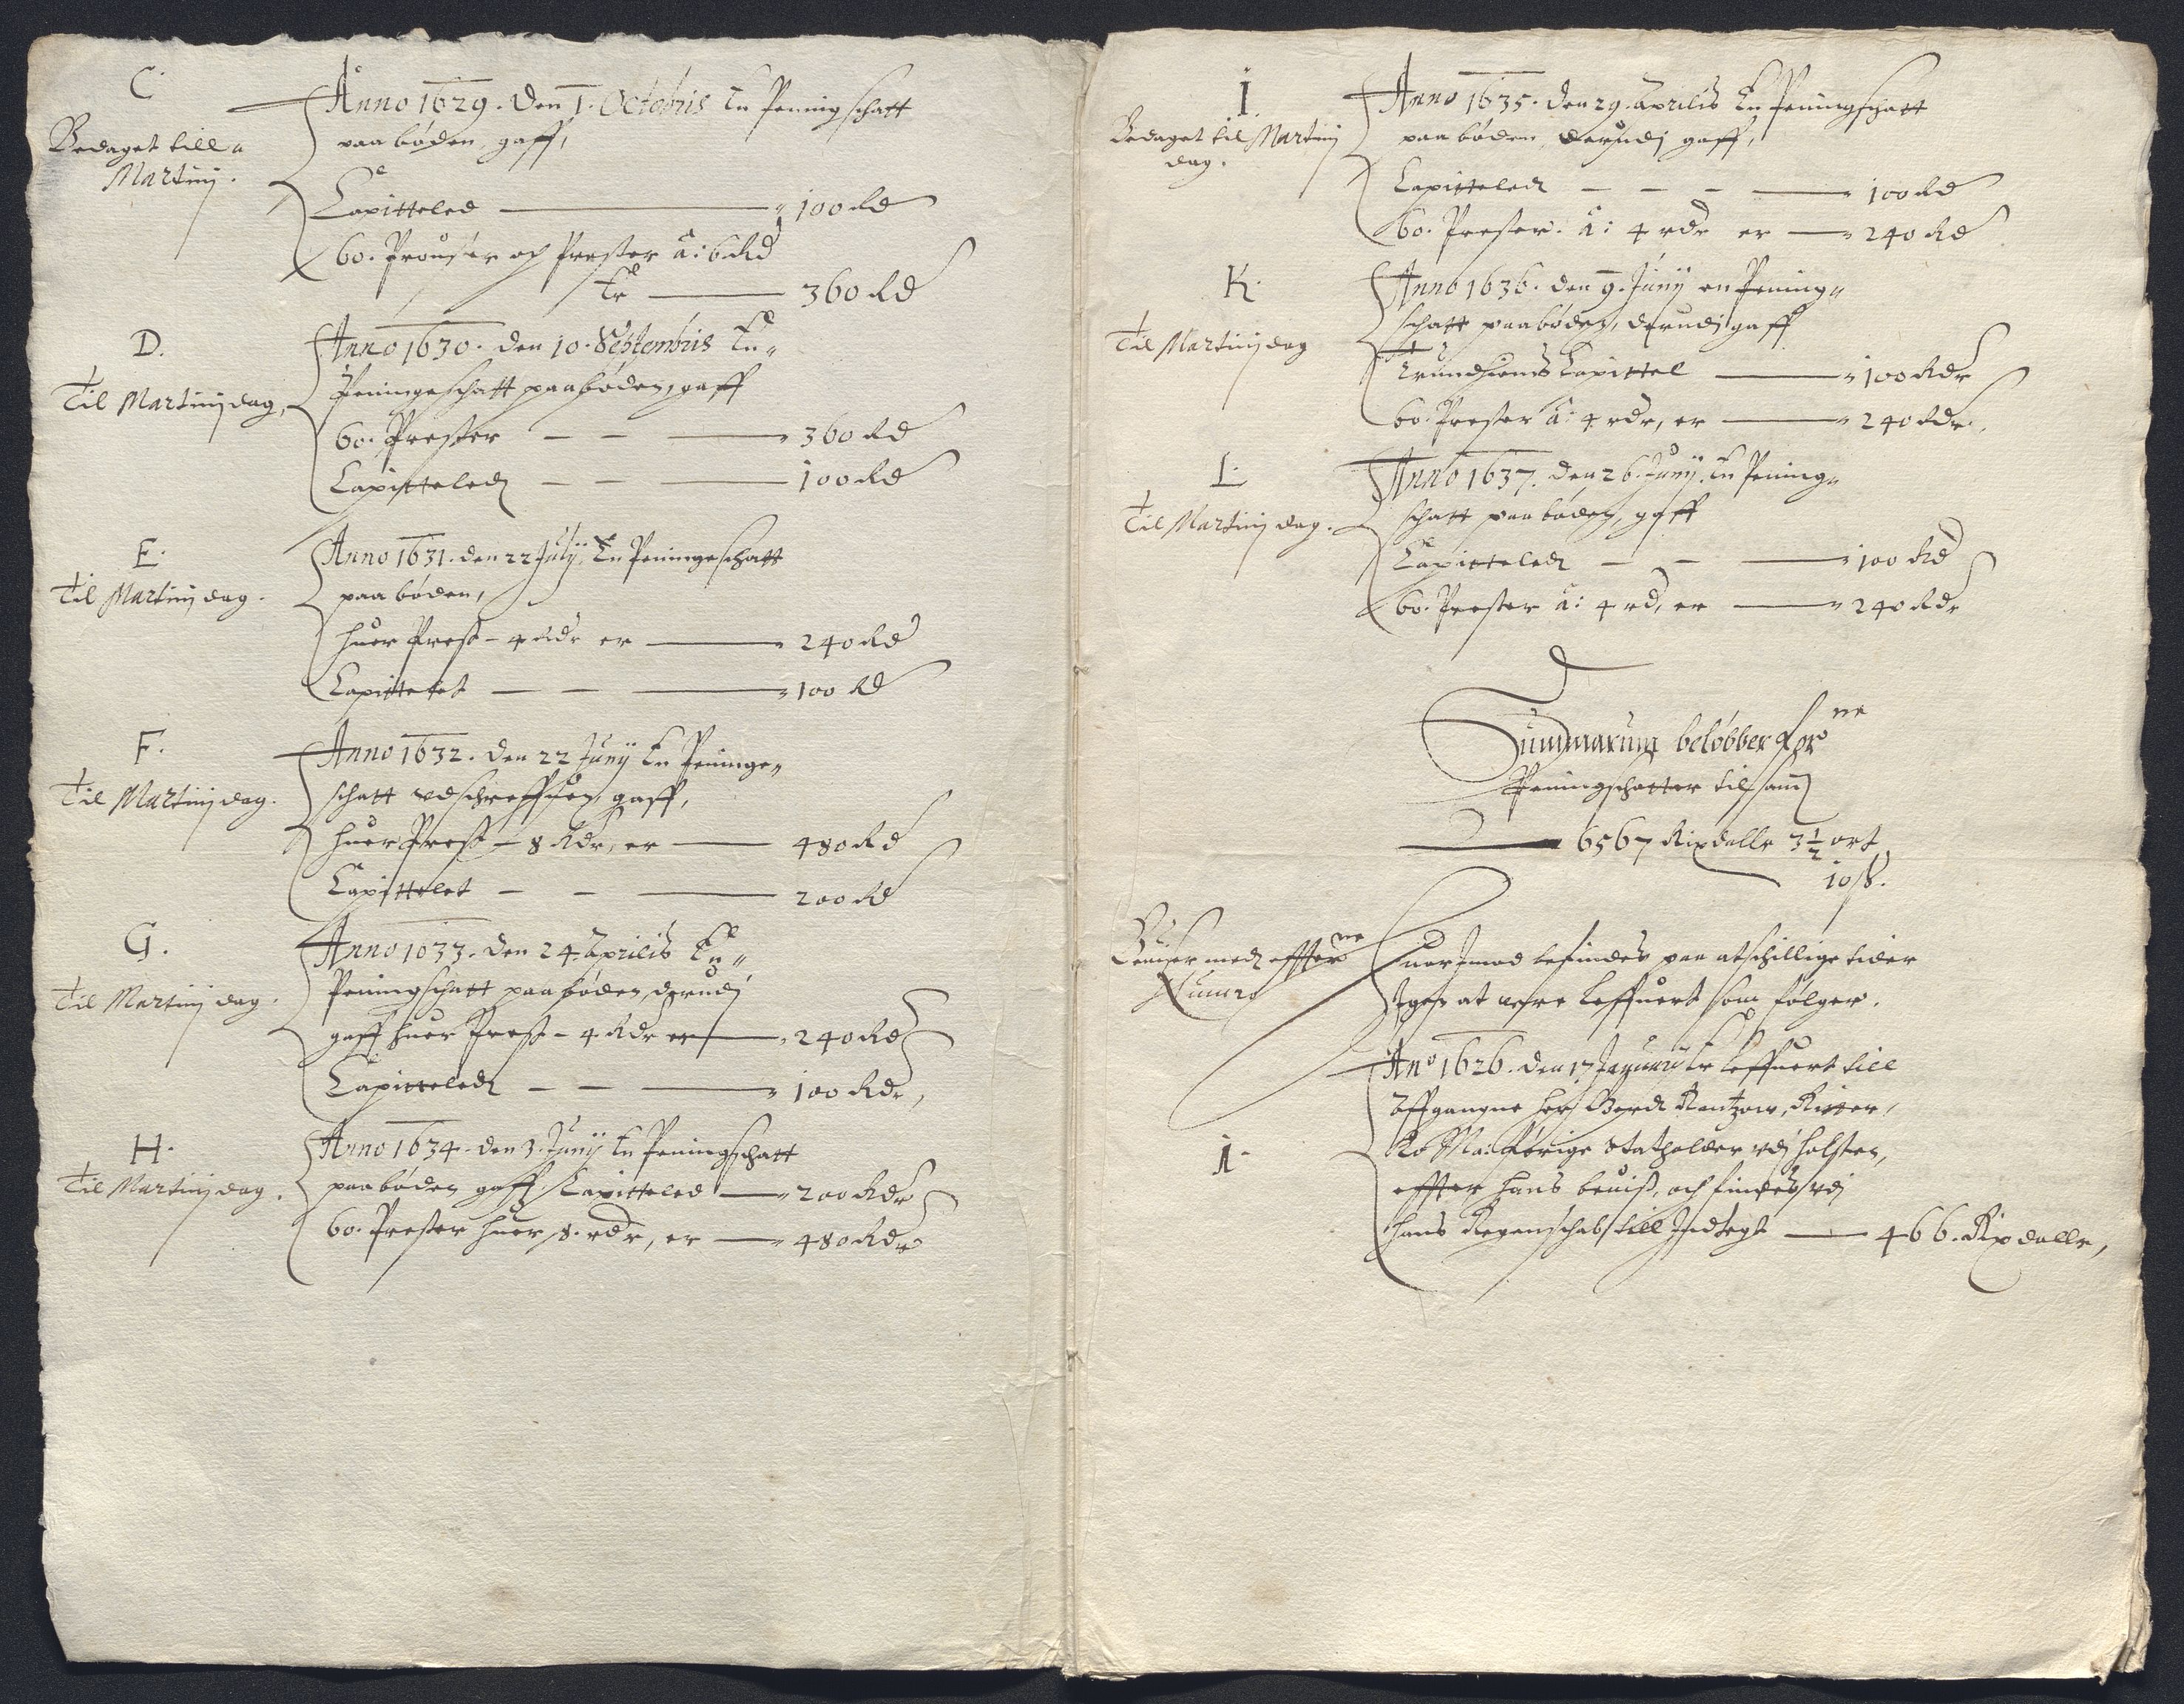 C.
Bedaget till
Martinj.
Anno 1629. Den 1. Octobris En Penning schatt
paabøden, gaff,
Capitteled 100 Rd
60. Prouster och Prester a: 6 Rd
Er 360 Rd
D.
Til Martinj dag,
Anno 1630. den 10. Septembris En
Peningeschatt paabøden, gaff
60. Prester 360 Rd
Capitteled 100 Rd
E.
Til Martinj dag.
Anno 1631. den 22 Julij, En Peningeschatt
paabøden,
huer Prest - 4 Rdr er 240 Rd
Capittelet 100 Rd
F.
Til Martinj dag.
Anno 1632. den 22 Junij En Peninge
schatt udschreffuen, gaff,
huer Prest - 8 Rdr, er 480 Rd
Capittelet 200 Rd
G.
Til Martinj dag.
Anno 1633. den 24 Aprilis En
Peningschatt paabøden, derudj
gaff huer Prest - 4 Rdr er 240 Rd
Capitteled 100 Rdr,
H.
Til Martinj dag.
Anno 1634. den 3. Junij En Peningschatt
paabøden gaff Capitteled 200 Rdr
60. Prester huer 8. rdr, er 480 Rdr
I.
Bedaget til Martinj
dag.
Anno 1635. den 29. Aprilis En Peningschatt
paabøden, derudj gaff,
Capitteled 100 Rd
60. Prester. a: 4 rdr er 240 Rd
K.
Til Martinj dag
Anno 1636. den 9. Junij en Pening
schatt paabøden, derudj gaff
Trundhiems Capittel 100 Rdr
60. Prester a: 4 rdr, er 240 Rdr.
L.
Til Martinj dag.
Anno 1637. den 26. Junij. En Pening
schatt paabøden, gaff
Capitteled 100 Rd
60. Prester a: 4 rd, er 240 Rdr
Summarum beløbber forne
Peningschatter tilsam
6567 Rixdallr 3 1/2 ort
10 ß.
Beuiser med effterne
Numro
Huorimod befindes paa atschillige tider
Igen at vere leffuert som følger.
Ano 1626. den 17 Januarij Er leffuert till
Affgangne her Gerdt Rantzow, Ritter,
Ko Ma: Forige Statholder udj Holsten,
effter hans beuiß, och findes udj
hans Regenschab till Indtegt 466. Rixdallr,
1.